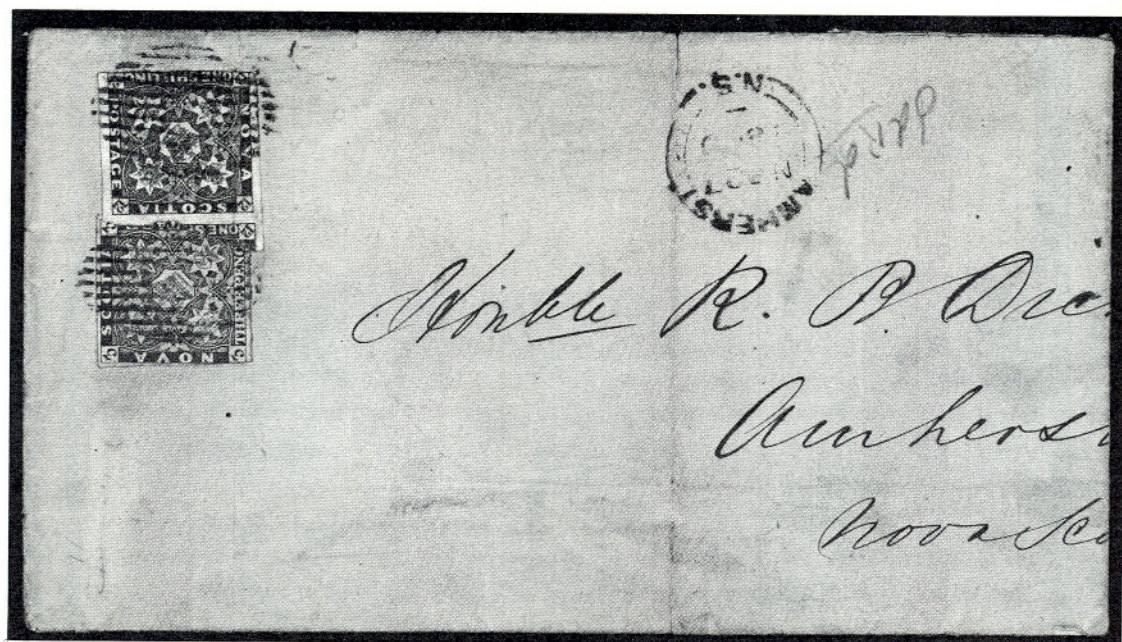 ONE SHILLING
NOVA
SCOTIA
POSTAGE
NOVA
AMHERST
N.S.
Honble R. B. Dic
Amherst
Nova Sco